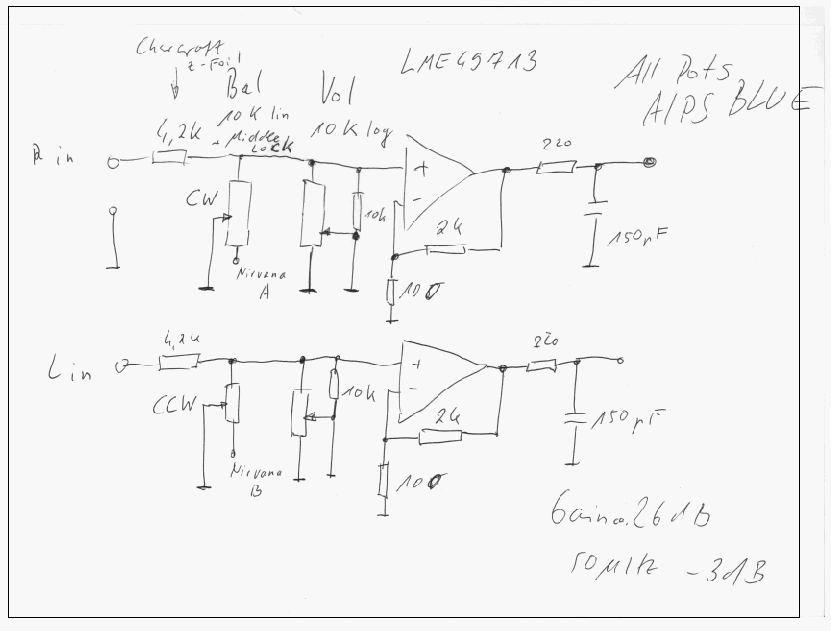 Charcroft
z-Foil
LME49713
Bal
Vol
All Pots
ALPS BLUE
10K lin
+ Middle
LOCK
10K log
4,2k
R in
+
-
220
CW
10k
2k
150pF
Nirvana
A
100
4,2k
L in
+
-
220
CCW
10k
2k
150pF
Nirvana
B
100
Gain
26dB
50MHz
-3dB